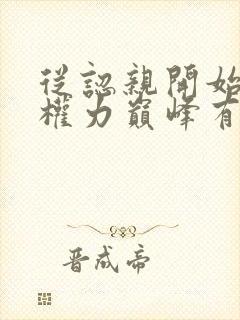 從認親開始
權力巔峰有
晉成帝